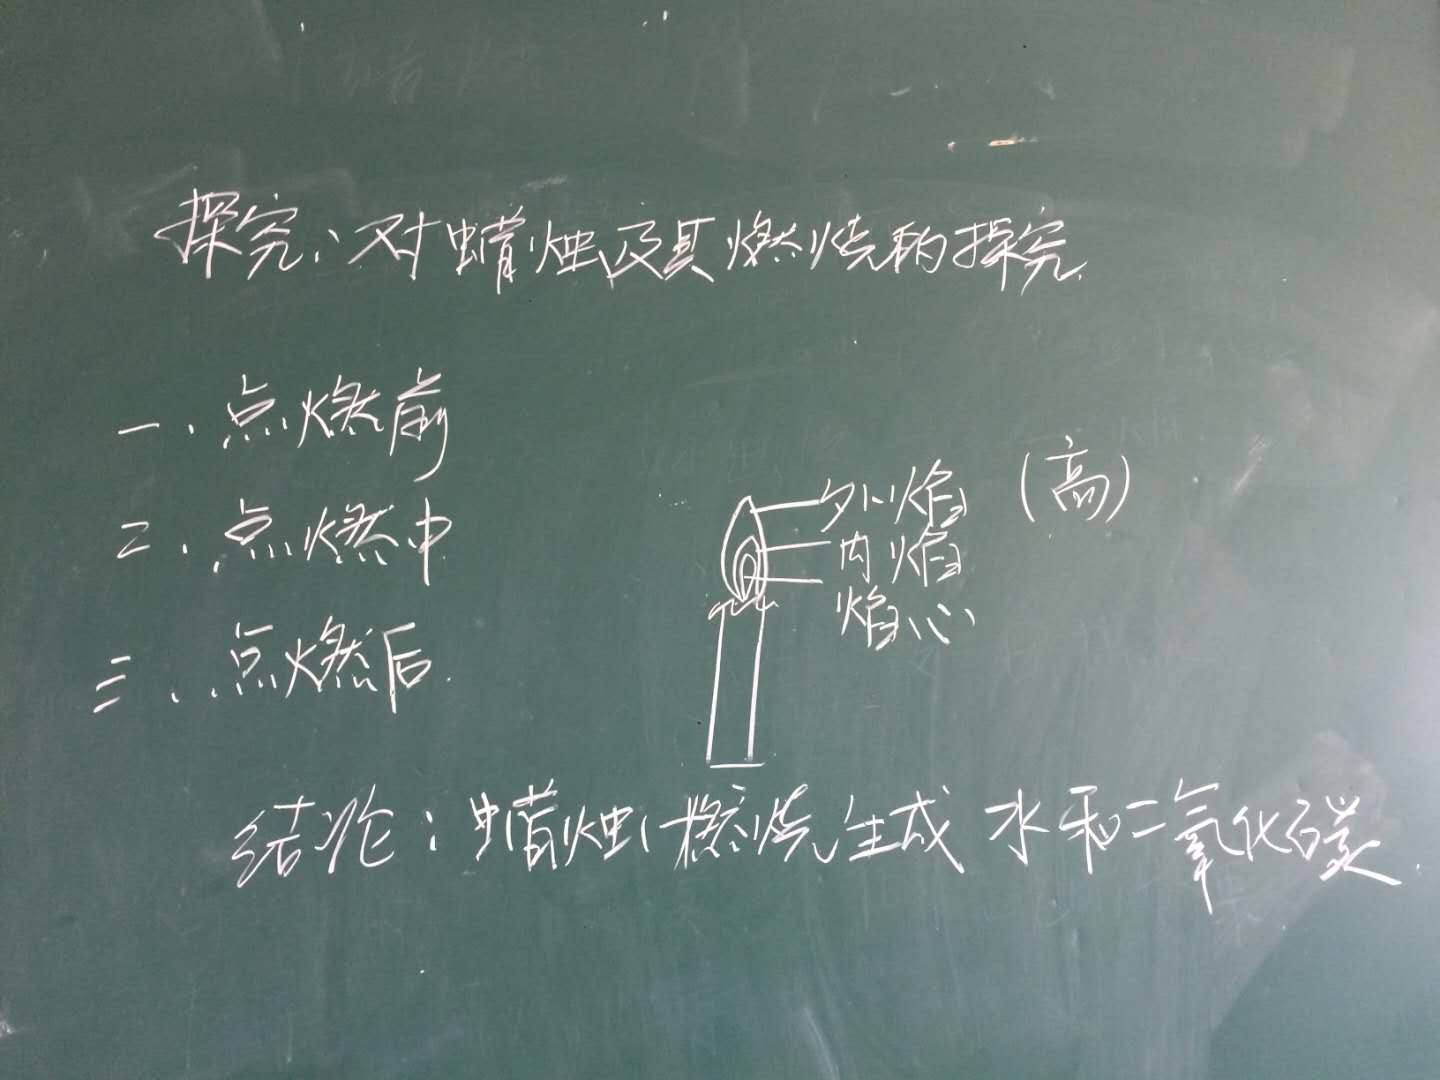 探究:对蜡烛及其燃烧的探究.
一、点燃前
二、点燃中
三、点燃后.
外焰 (高)
内焰
焰心
结论:蜡烛燃烧生成水和二氧化碳.